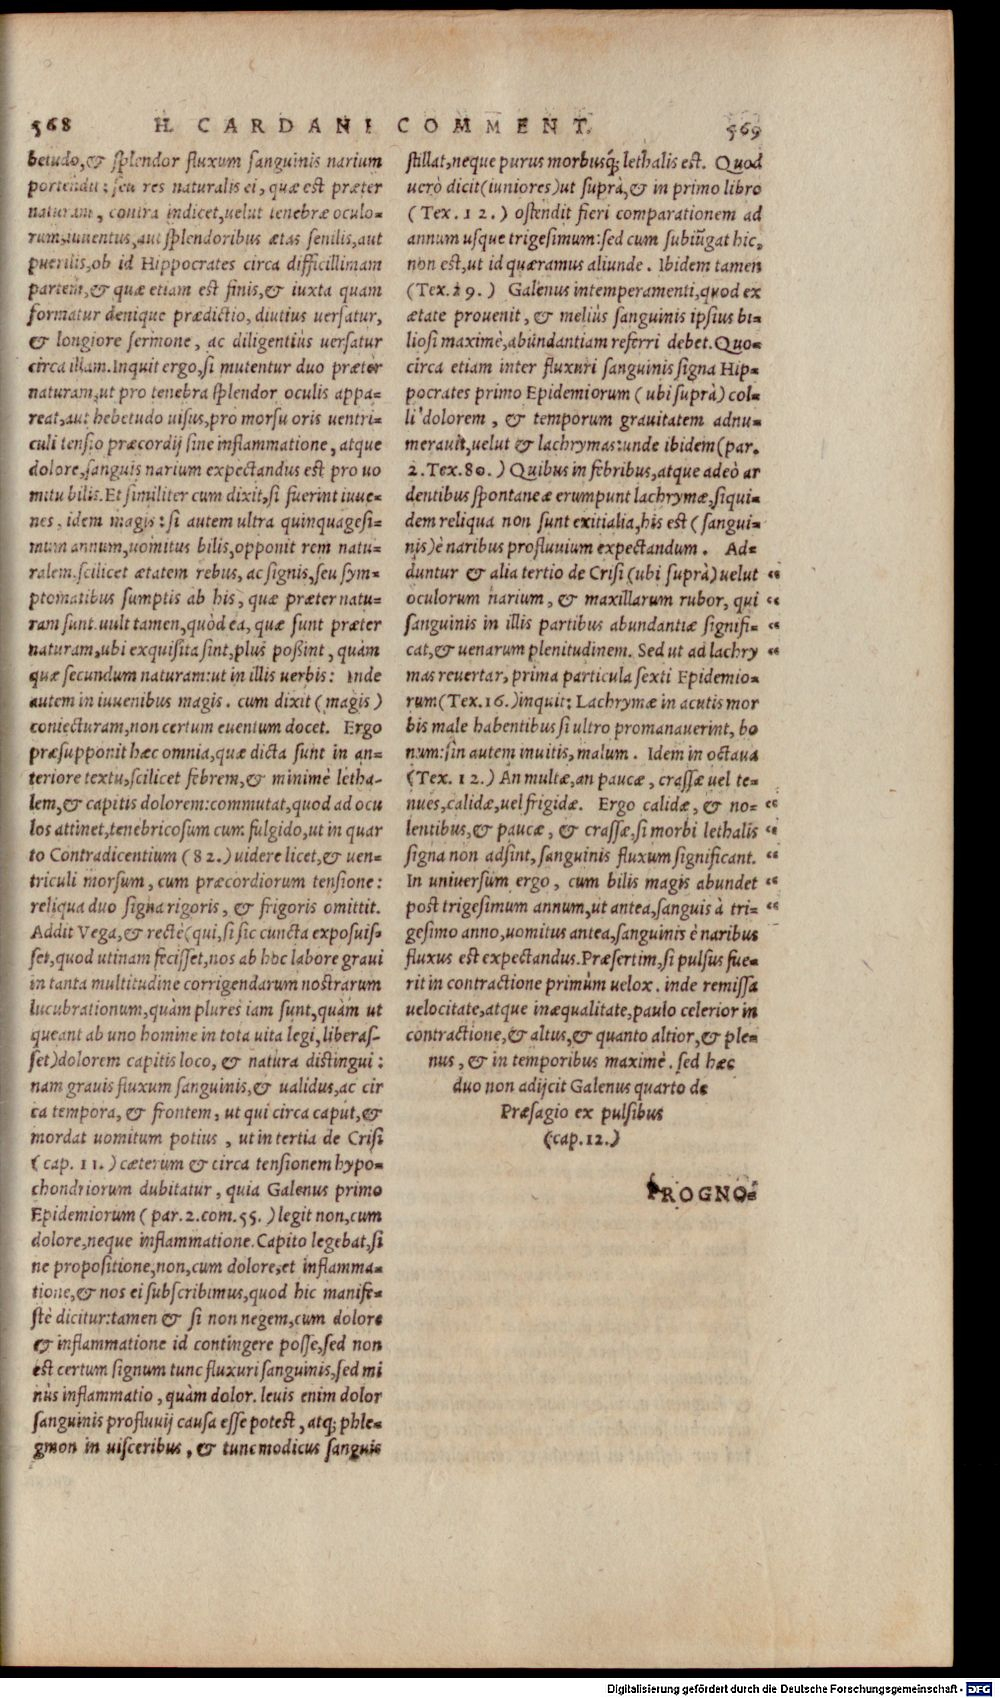 568 H. CARDANI COMMENT. 569
betudo, & splendor fluxum sanguinis narium
portendit: seu res naturalis ei, quæ est præter
naturam, contra indicet, uelut tenebræ oculo-
rum, iuuentus, aut splendoribus ætas senilis, aut
puerilis, ob id Hippocrates circa difficillimam
partem, & quæ etiam est finis, & iuxta quam
formatur denique prædictio, diutius uersatur,
& longiore sermone, ac diligentiùs uersatur
circa illam. Inquit ergo, si mutentur duo præter
naturam, ut pro tenebra splendor oculis appa-
reat, aut hebetudo uisus, pro morsu oris uentri-
culi tensio præcordij sine inflammatione, atque
dolore, sanguis narium expectandus est pro uo
mitu bilis. Et similiter cum dixit, si fuerint iuue-
nes, idem magis: si autem ultra quinquagesi-
mum annum, uomitus bilis, opponit rem natu-
ralem. scilicet ætatem rebus, ac signis, seu sym-
ptomatibus sumptis ab his, quæ præter natu-
ram sunt. uult tamen, quòd ea, quæ sunt præter
naturam, ubi exquisita sint, plus poßint, quàm
quæ secundum naturam: ut in illis uerbis: Inde
autem in iuuenibus magis. cum dixit (magis)
coniecturam, non certum euentum docet. Ergo
præsupponit hæc omnia, quæ dicta sunt in an-
teriore textu, scilicet febrem, & minimè letha-
lem, & capitis dolorem: commutat, quod ad ocu
los attinet, tenebricosum cum fulgido, ut in quar
to Contradicentium (82.) uidere licet, & uen-
triculi morsum, cum præcordiorum tensione:
reliqua duo signa rigoris, & frigoris omittit.
Addit Vega, & rectè (qui, si sic cuncta exposuis-
set, quod utinam fecisset, nos ab hoc labore graui
in tanta multitudine corrigendarum nostrarum
lucubrationum, quàm plures iam sunt, quàm ut
queant ab uno homine in tota uita legi, liberas-
set) dolorem capitis loco, & natura distingui:
nam grauis fluxum sanguinis, & ualidus, ac cir
ca tempora, & frontem, ut qui circa caput, &
mordat uomitum potius, ut in tertia de Crisi
(cap. 11.) cæterum & circa tensionem hypo-
chondriorum dubitatur, quia Galenus primo
Epidemiorum (par. 2. com. 55.) legit non, cum
dolore, neque inflammatione. Capito legebat, si
ne propositione, non, cum dolore, et inflamma-
tione, & nos ei subscribimus, quod hic manife-
stè dicitur: tamen & si non negem, cum dolore
& inflammatione id contingere posse, sed non
est certum signum tunc fluxuri sanguinis, sed mi
nùs inflammatio, quàm dolor. leuis enim dolor
sanguinis profluuij causa esse potest, atq; phle-
gmon in uisceribus, & tunc modicus sanguis
stillat, neque purus morbusq; lethalis est. Quod
uerò dicit (iuniores) ut suprà, & in primo libro
(Tex. 12.) ostendit fieri comparationem ad
annum usque trigesimum: sed cum subiũgat hic,
non est, ut id quæramus aliunde. Ibidem tamen
(Tex. 29.) Galenus intemperamenti, quod ex
ætate prouenit, & meliùs sanguinis ipsius bi-
liosi maximè, abundantiam referri debet. Quo-
circa etiam inter fluxuri sanguinis signa Hip-
pocrates primo Epidemiorum (ubi suprà) col-
li dolorem, & temporum grauitatem adnu-
merauit, uelut & lachrymas: unde ibidem (par.
2. Tex. 80.) Quibus in febribus, atque adeò ar
dentibus spontaneæ erumpunt lachrymæ, siqui-
dem reliqua non sunt exitialia, his est (sangui-
nis) è naribus profluuium expectandum. Ad-
duntur & alia tertio de Crisi (ubi suprà) uelut “
oculorum narium, & maxillarum rubor, qui “
sanguinis in illis partibus abundantiæ signifi- “
cat, & uenarum plenitudinem. Sed ut ad lachry “
mas reuertar, prima particula sexti Epidemio-
rum (Tex. 16.) inquit: Lachrymæ in acutis mor
bis male habentibus si ultro promanauerint, bo
num: sin autem inuitis, malum. Idem in octaua
(Tex. 12.) An multæ, an paucæ, crassæ uel te-
nues, calidæ, uel frigidæ. Ergo calidæ, & no- “
lentibus, & paucæ, & crassæ, si morbi lethalis “
signa non adsint, sanguinis fluxum significant. “
In uniuersum ergo, cum bilis magis abundet “
post trigesimum annum, ut antea, sanguis à tri- “
gesimo anno, uomitus antea, sanguinis è naribus
fluxus est expectandus. Præsertim, si pulsus fue-
rit in contractione primùm uelox. inde remissa
uelocitate, atque inæqualitate, paulo celerior in
contractione, & altus, & quanto altior, & ple-
nus, & in temporibus maximè. sed hæc
duo non adijcit Galenus quarto de
Præsagio ex pulsibus
(cap. 12.)
PROGNO-
Digitalisierung gefördert durch die Deutsche Forschungsgemeinschaft - DFG